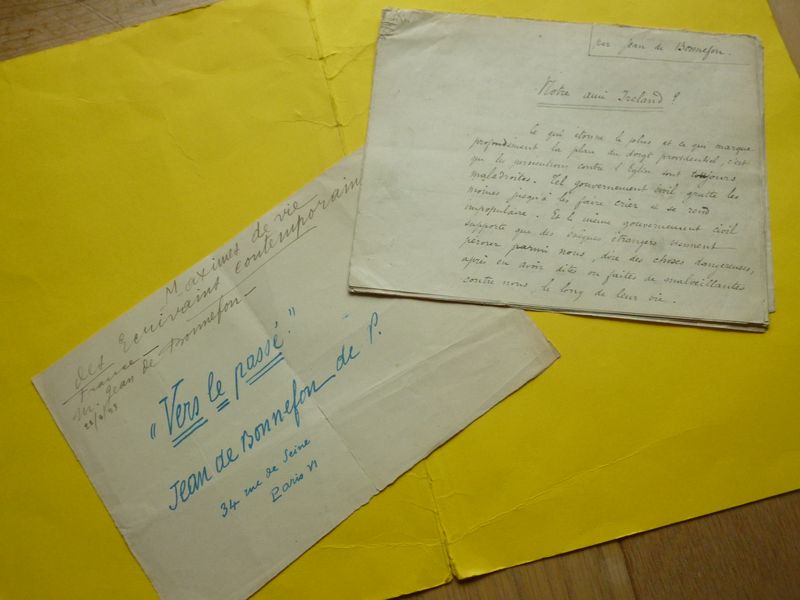 Maximes de vie
des Ecrivains contemporains
France
M. Jean de Bonnefon
"Vers le passé."
Jean de Bonnefon de P.
34 rue de Seine
Paris VI
par Jean de Bonnefon.
Notre ami Ireland !
Ce qui étonne le plus et ce qui marque
profondément la place du doigt providentiel, c'est
que les persécutions contre l'Eglise sont toujours
maladroites. Tel gouvernement civil gratte les
moines jusqu'à les faire crier et se rend
impopulaire. Et le même gouvernement civil
supporte que des évêques étrangers viennent
pérorer parmi nous, dire des choses dangereuses,
après en avoir dites ou faites de malveillantes
contre nous, le long de leur vie.